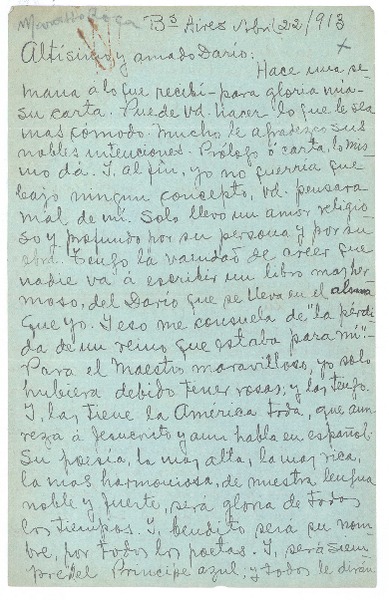 Bs Aires Abril 22/913
Altísimo y amado Darío:
Hace una se-
mana á lo que recibí - para gloria mía -
su carta. Puede Vd. hacer lo que le sea
mas cómodo. Mucho le agradezco sus
nobles intenciones. Prólogo ó carta, lo mis-
mo dá. I, al fin, yo no querría que
bajo ningun concepto, Vd. pensara
mal de mí. Solo llevo un amor religio-
so y profundo por su persona y por su
obra. Tengo la vanidad de creer que
nadie va á escribir un libro mas her
moso, del Darío que se lleva en el alma
que yo. I eso me consuela de "la pérdi
da de un reino que estaba para mí" -
Para el Maestro maravilloso, yo solo
hubiera debido tener rosas; y las tengo.
I, las tiene la América toda, que aun
reza á Jesucristo y aun habla en español.
Su poesía, la mas alta, la mas rica,
la mas harmoniosa, de nuestra lengua
noble y fuerte, será gloria de todos
los tiempos. I, bendito será su nom-
bre, por todos los poetas. I, será siem
pre el Príncipe azul, y todos le dirán